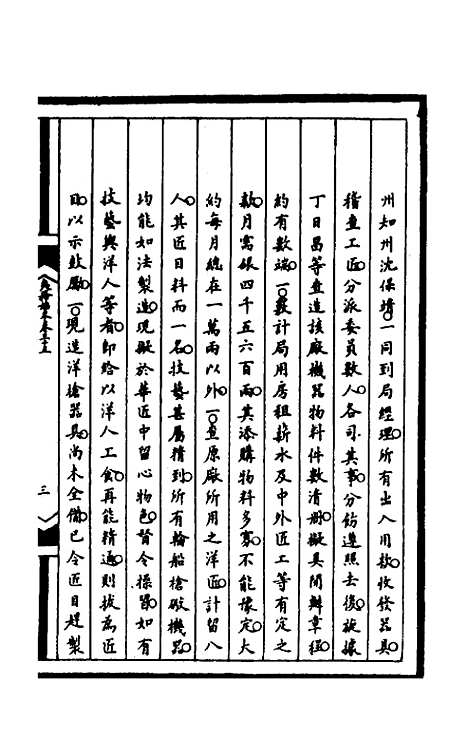 州知州沈保靖。一同到局經理。所有出入用款收發器具。
稽查工匠。分派委員數人。各司其事。分飭遵照去後。旋據
丁日昌等查造該廠機器物料件數清冊。擬具開辦章程。
約有數端。一數計局用房租薪水及中外匠工等有定之
款。月需銀四千五六百兩。其添購物料多寡。不能豫定。大
約每月總在一萬兩以外。一查原廠所用之洋匠。計留八
人。其匠目料而一名。技藝甚屬精到。所有輪船槍礮機器。
均能如法製造。現擬於華匠中留心物色。督令操習。如有
技藝與洋人等者。即給以洋人工食。再能精通。則拔為匠
目。以示鼓勵。一現造洋槍器具。尚未全備。已令匠目趕製
三